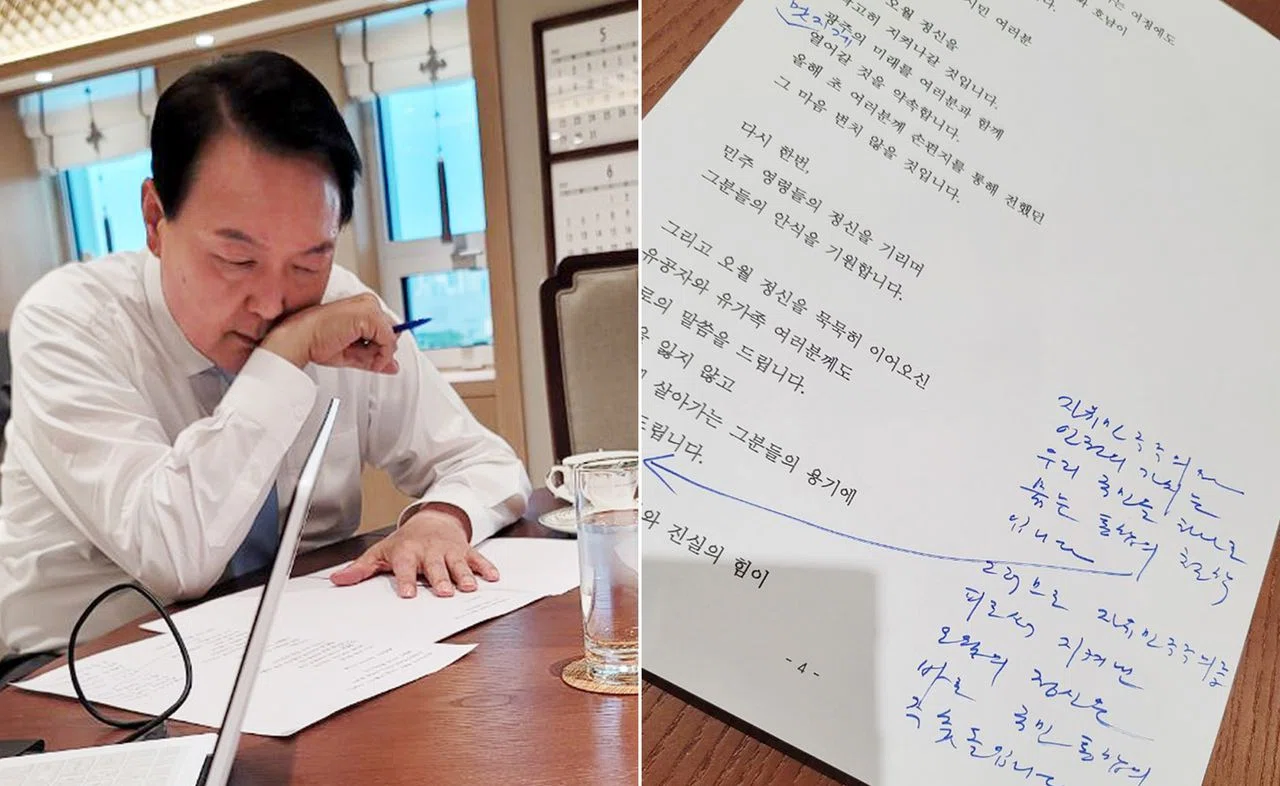 5
6
여정에도
호남이
여러분
오월 정신을
확고히 지켜나갈 것입니다.
광주의 미래를 여러분과 함께
열어갈 것을 약속합니다.
올해 초 여러분께 손편지를 통해 전했던
그 마음 변치 않을 것입니다.
다시 한번,
민주 영령들의 정신을 기리며
그분들의 안식을 기원합니다.
그리고 오월 정신을 묵묵히 이어오신
유공자와 유가족 여러분께도
로의 말씀을 드립니다.
을 잃지 않고
살아가는 그분들의 용기에
드립니다.
와 진실의 힘이
- 4 -
자유민주주의와
인권의 가치는
우리 국민을 하나로
묶는 통합의 철학
입니다
그러므로 자유민주주의를
피로써 지켜낸
오월의 정신은
바로 국민 통합의
주춧돌입니다